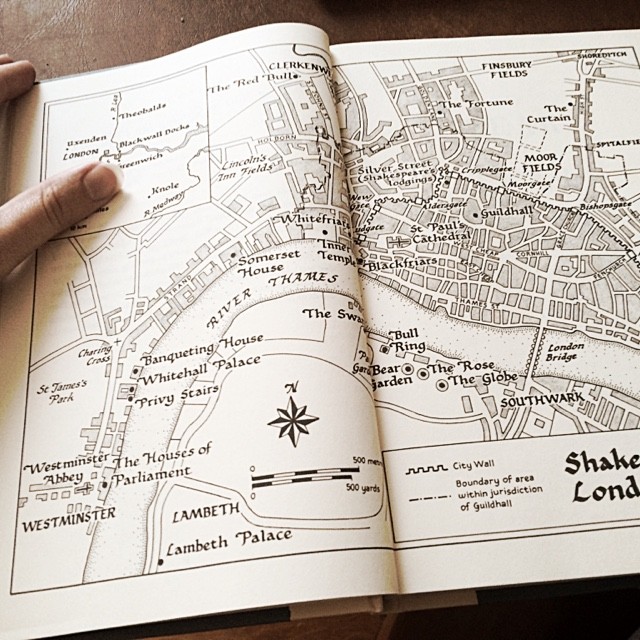 Theobalds
LONDON
Blackwall Docks
Knole
R. Medway
CLERKENW
The Red Bull
FINSBURY
FIELDS
SHOREDITCH
The Fortune
The
Curtain
HOLBORN
Lincoln's
Inn Fields
Silver Street
Cripplegate
MOOR
FIELDS
Moorgate
SPITALFIE
Bishopsgate
Aldersgate
Guildhall
St Paul's
Cathedral
CORNHILL
Whitefriars
Inner
Temple
Blackfriars
THAMES ST
Somerset
House
STRAND
RIVER THAMES
The Swa
Bull
Ring
Bear
Garden
The Rose
The Globe
London
Bridge
SOUTHWARK
Charing
Cross
St James's
Park
Banqueting House
Whitehall Palace
Privy Stairs
N
Westminster
Abbey
The Houses of
Parliament
WESTMINSTER
LAMBETH
Lambeth Palace
0
500 metr
0
500 yards
City Wall
Boundary of area
within jurisdiction
of Guildhall
Shake
Lond